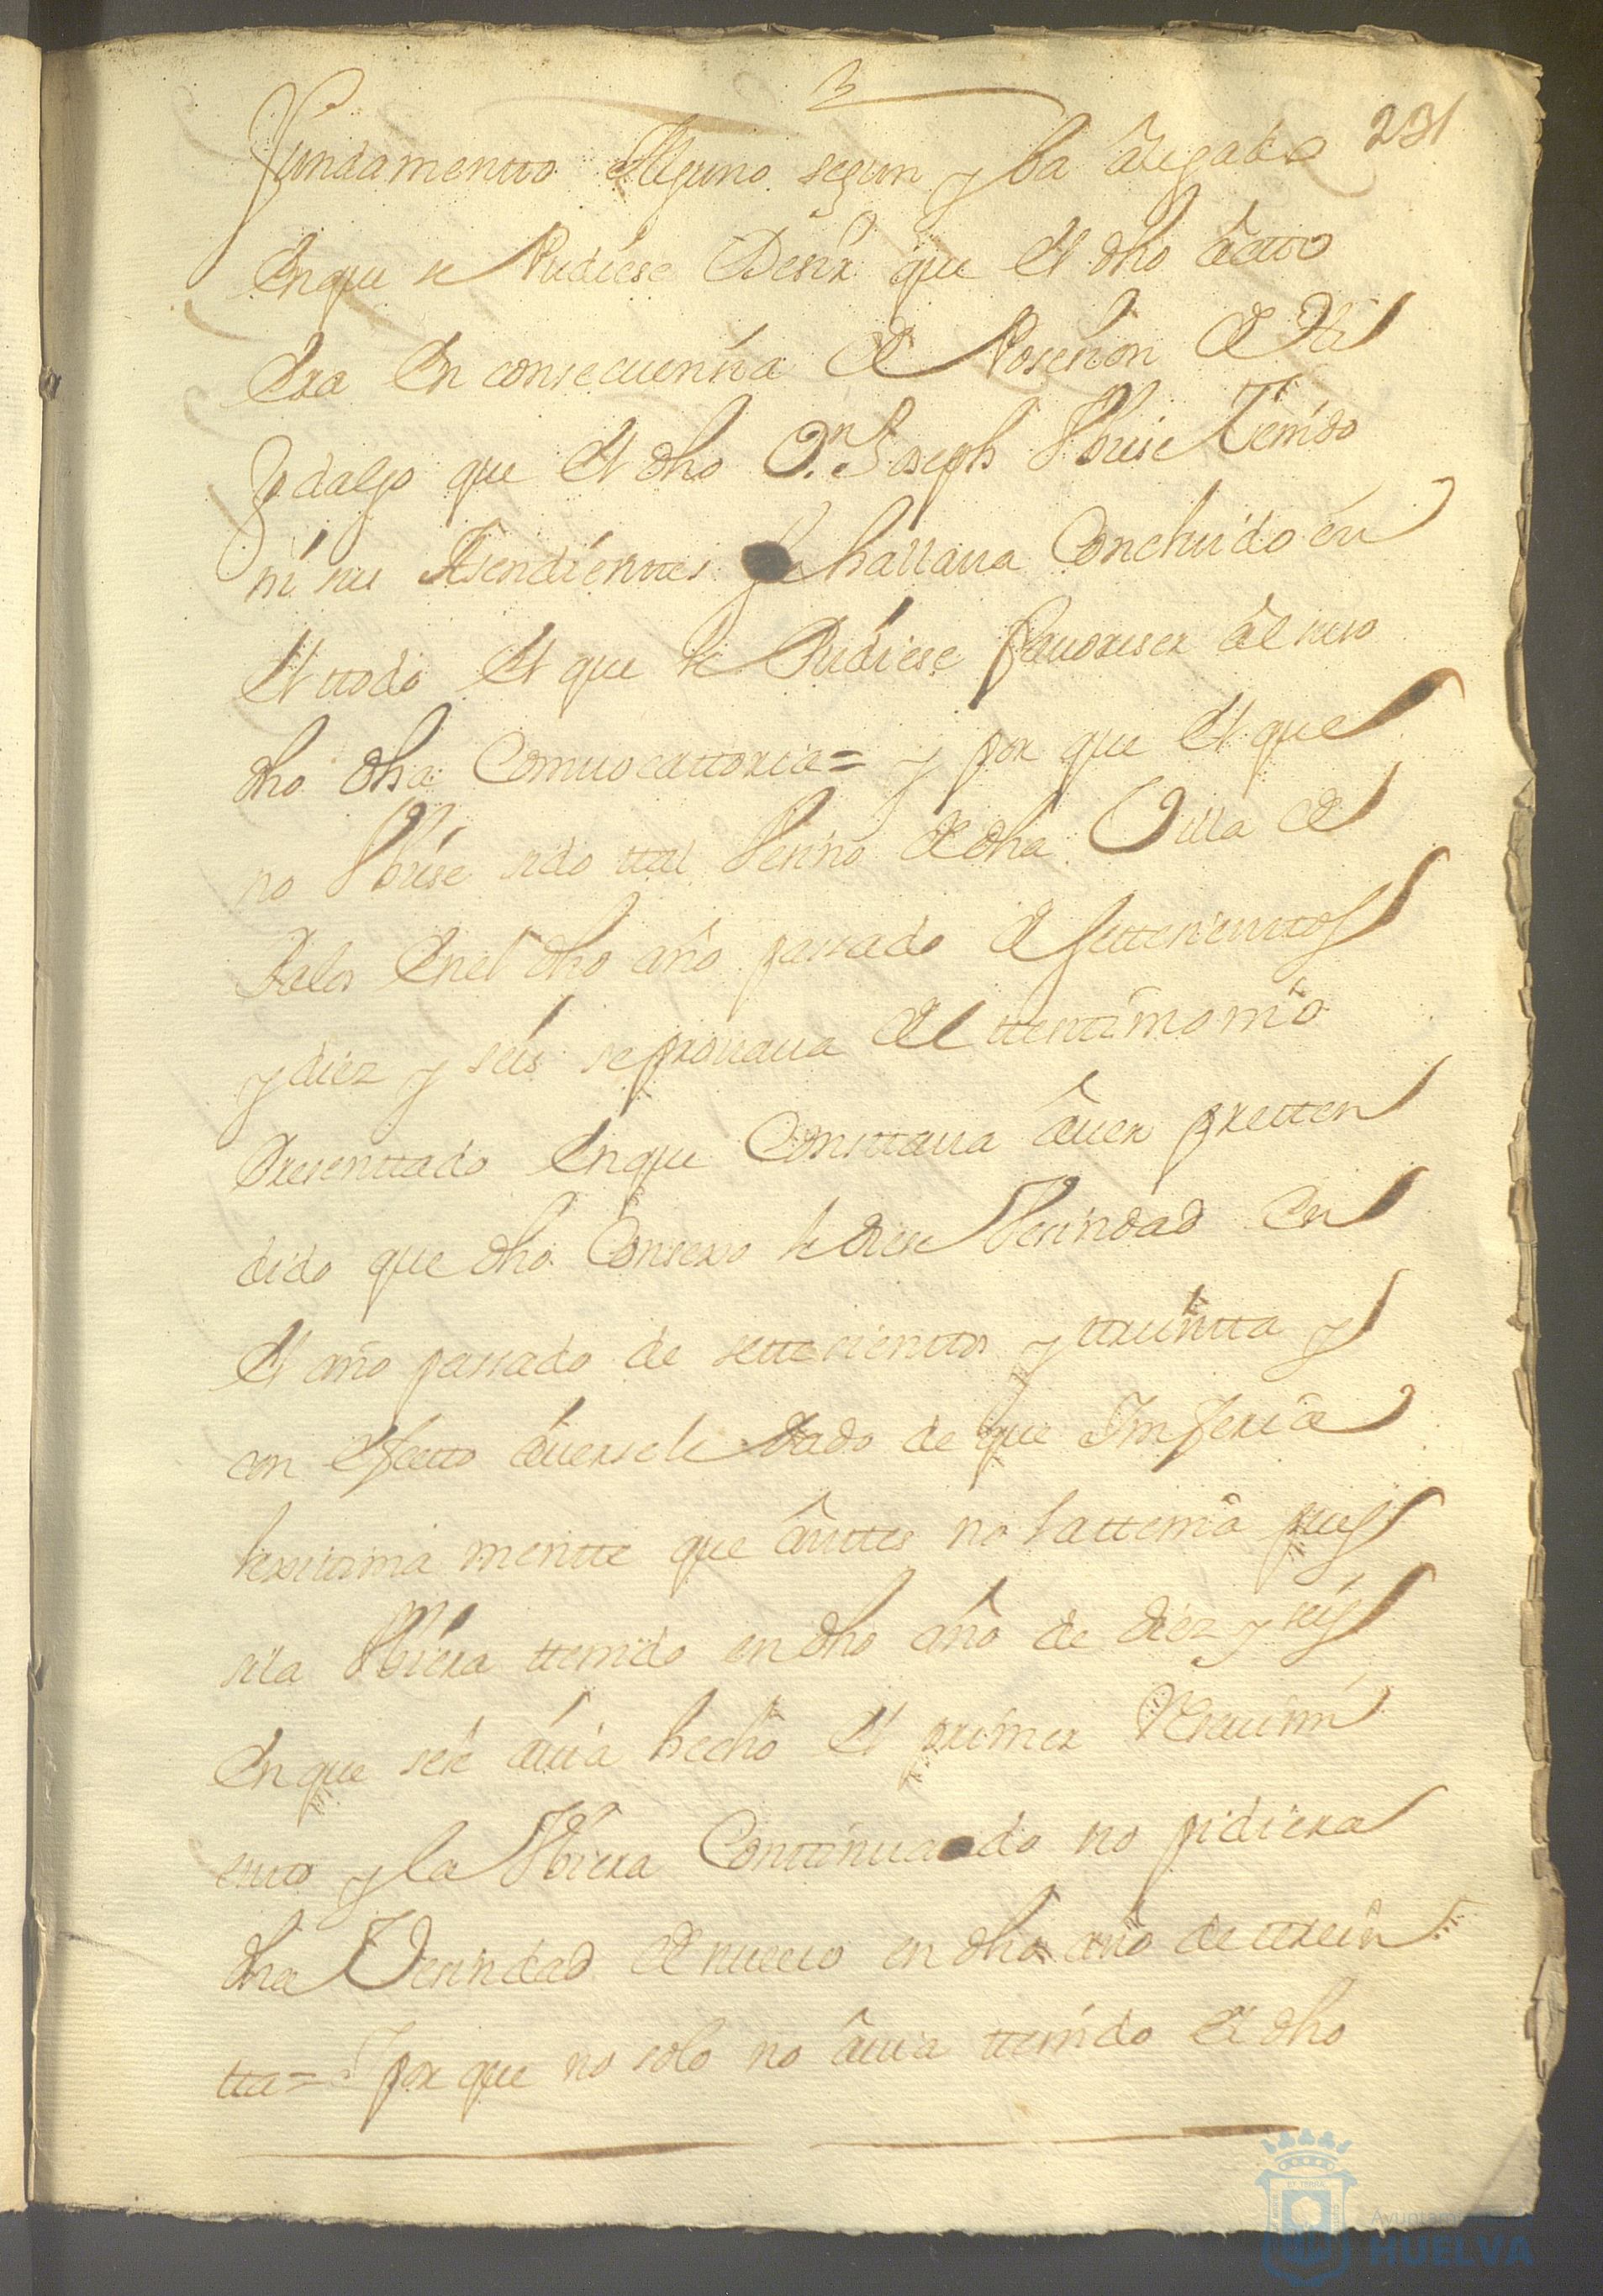 231
fundamentto Alguno segun y ba âlegado
Enque se Pudiese Desir que El dho âctto
Era En consecuensia de Posesion de Hi
Jodalgo que El dho Dn. Joseph Vbise Tenido
ni sus Asendienttes Se hallaua Concluido en
El ttodo El que le Pudiese fauoreser âl suso
dho dha Comuocattoria = y por que El que
no Vbise sido ttal Vesino de dha Villa de
Palos Enel dho año passado de settesienttos
y diez y seis se prouaua del ttesttimonio
Presenttado Enque Consttaua âuer pretten
dido que dho Consexo le diese Vesindad En
El año passado de settesienttos y ttreintta y
con Efectto âuersele dado de que Inferia
lexittima mentte que ântes no la ttenia pues
si la Vbiera ttenido en dho año de diez y seis
En que se le âuia hecho El primer Resiuimi
entto y la Vbiera Conttinuado no pidiera
dha Vesindad de nueuo en dho año de ttrein
tta = Y por que no solo no âuia ttenido El dho
Ayuntamiento
HUELVA